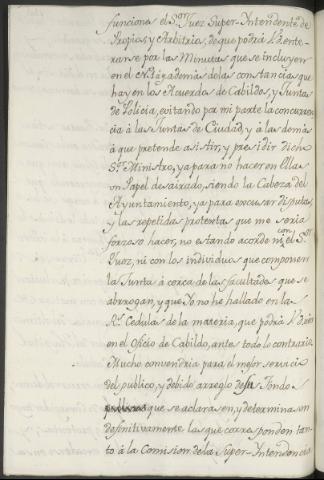 funciona el S.or Juez Super-Intendente de
Propios, y Arbitrios, de que podrá V. ente-
rarse por las Minutas que se incluyen
en el N.o y además de las constancias que
hay en los Acuerdos de Cabildos, y Juntas
de Policia, evitando por mi parte la concurren
cia á las Juntas de Ciudad, y á las demás
á que pretende asistir, y presidir dicho
S.or Ministro, ya para no hacer en Ellas
un Papel desairado, siendo la Cabeza del
Ayuntamiento, ya para excusar disputas,
y las repetidas protextas que me seria
forzoso hacer, no estando acorde con el S.or
Juez, ni con los individuos que componen
la Junta á cerca de las facultades que se
abrrogan, y que Yo no he hallado en las
R.s Cedulas de la materia, que podrá V.
en el Oficio de Cabildo, antes todo lo contrario.
Mucho convendria para el mejor servicio
del publico, y debido arreglo de sus fondos
que se aclarasen, y determinasen
definitivamente las que corresponden tan-
to á la Comision de la Super-Intendencia